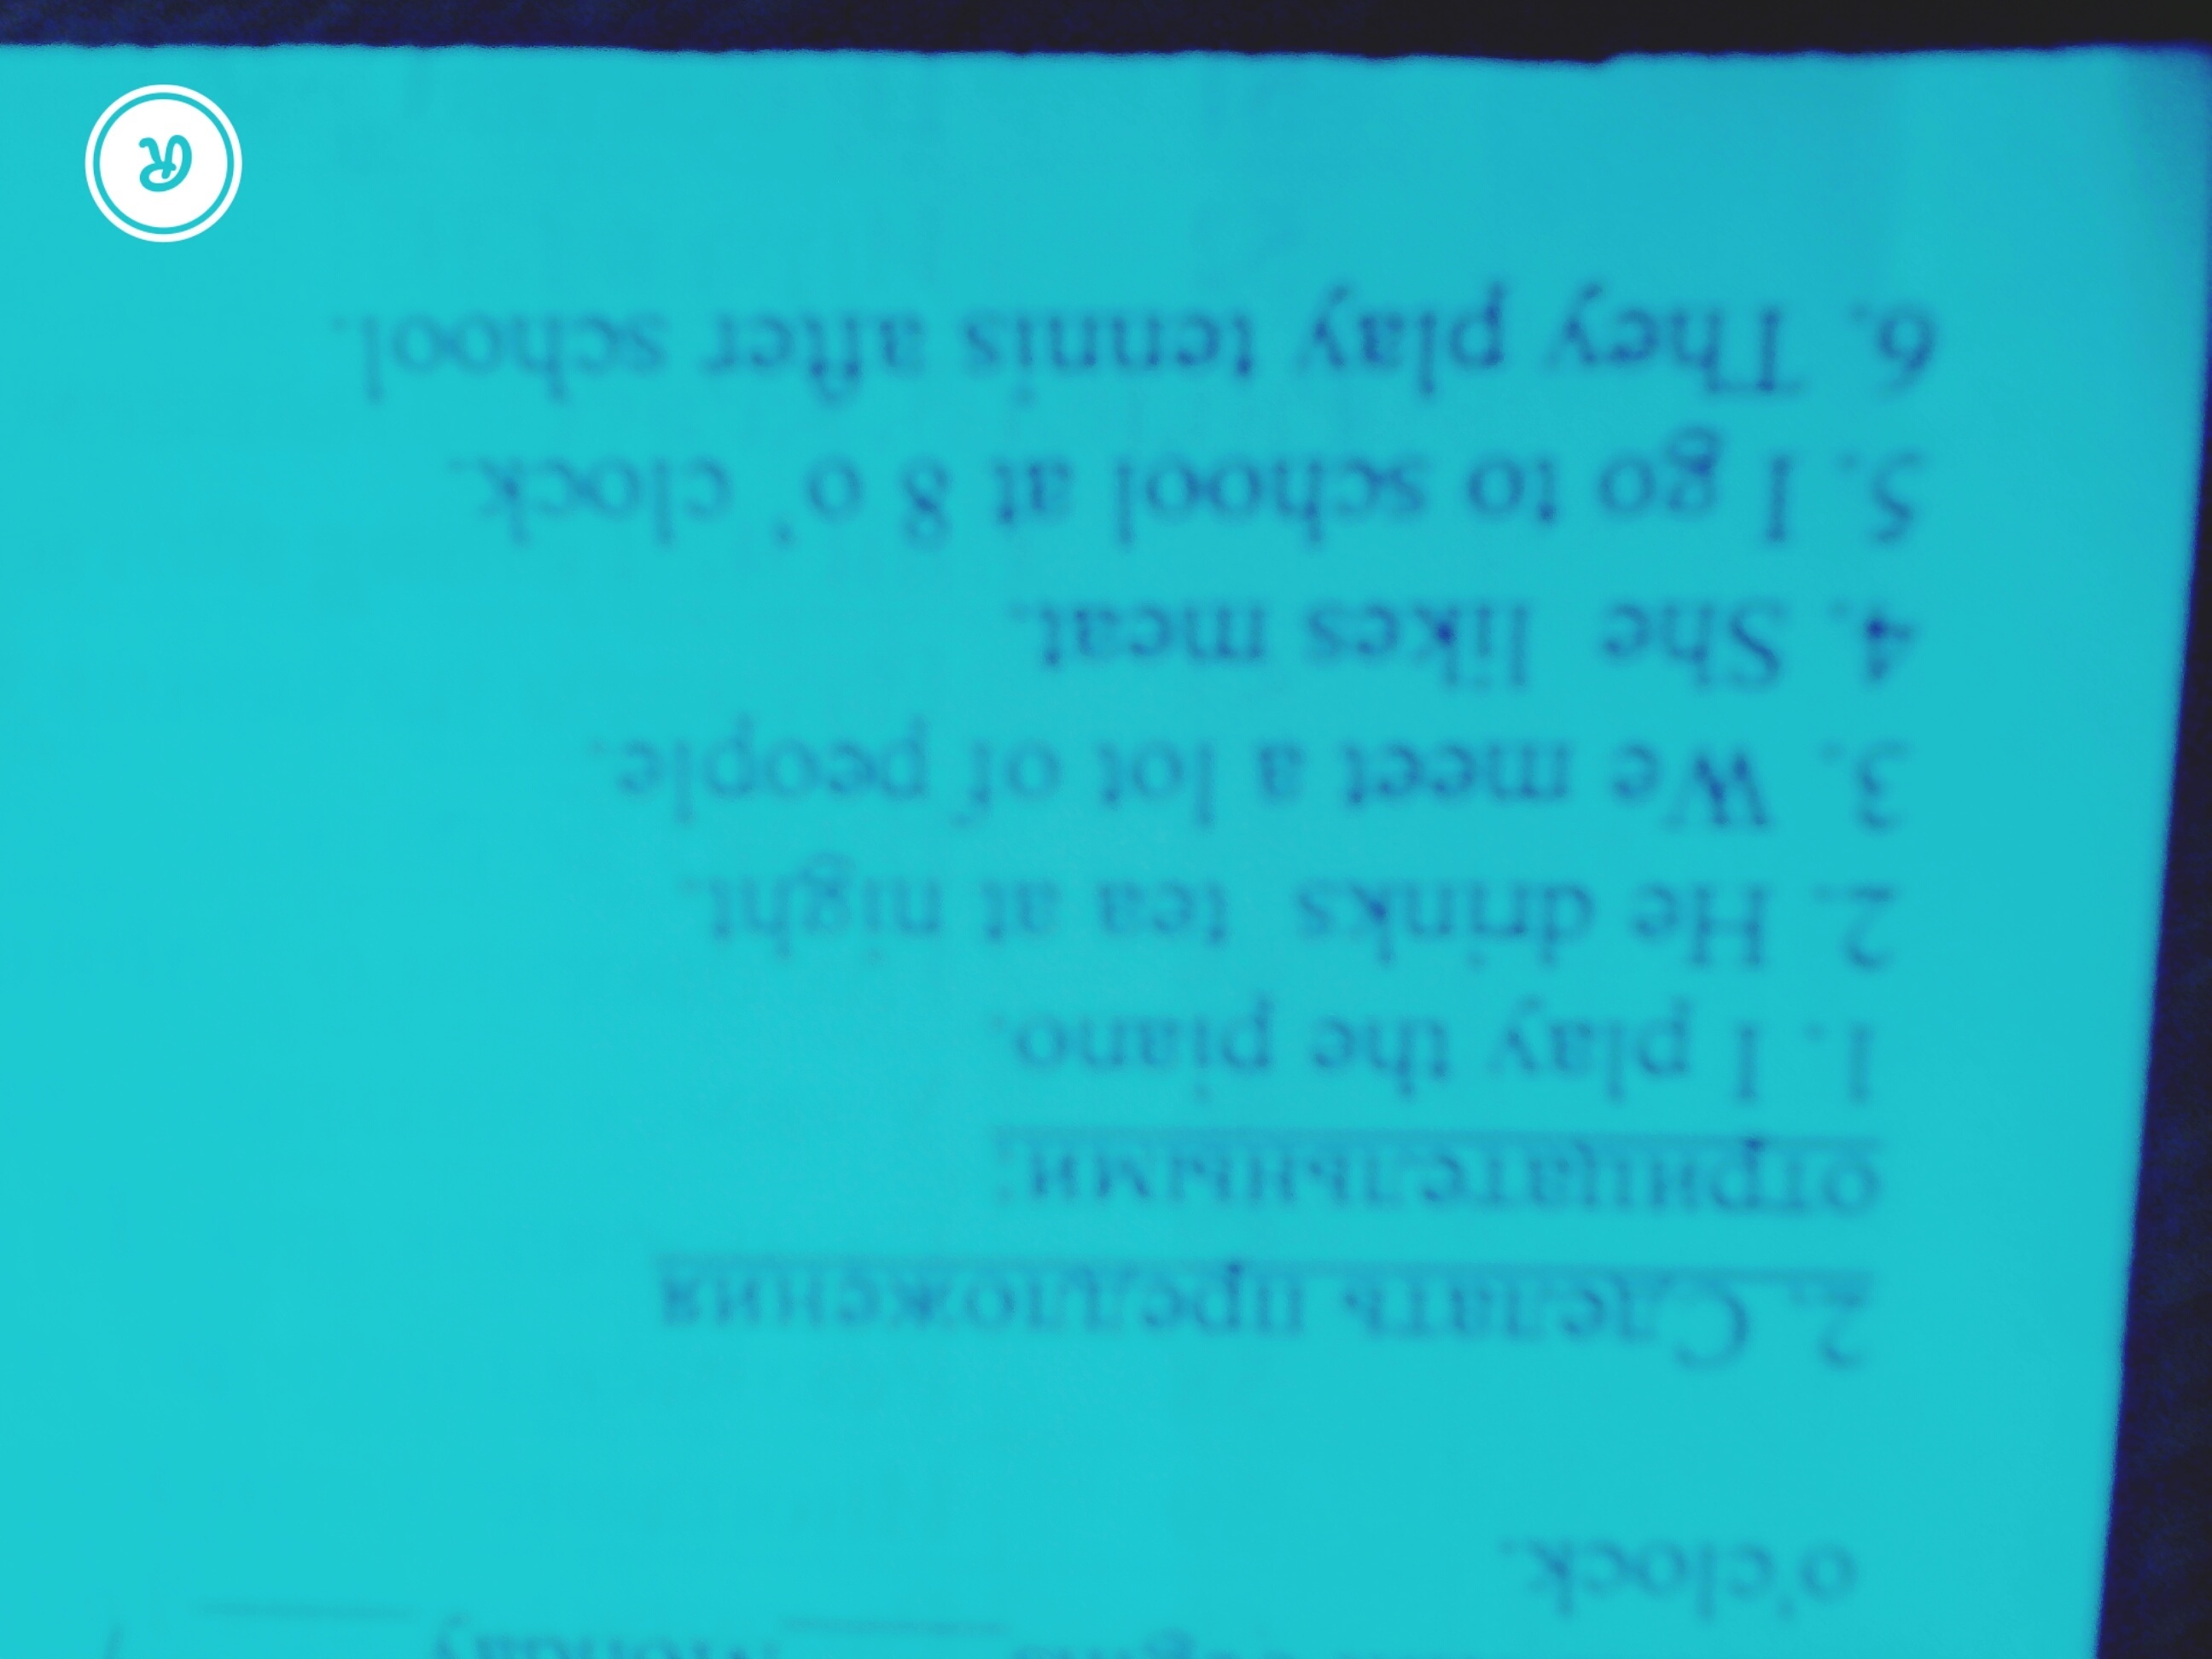 Monday
o'clock.
2. Сделать предложения
отрицательными:
1. I play the piano.
2. He drinks tea at night.
3. We meet a lot of people.
4. She likes meat.
5. I go to school at 8 o' clock.
6. They play tennis after school.